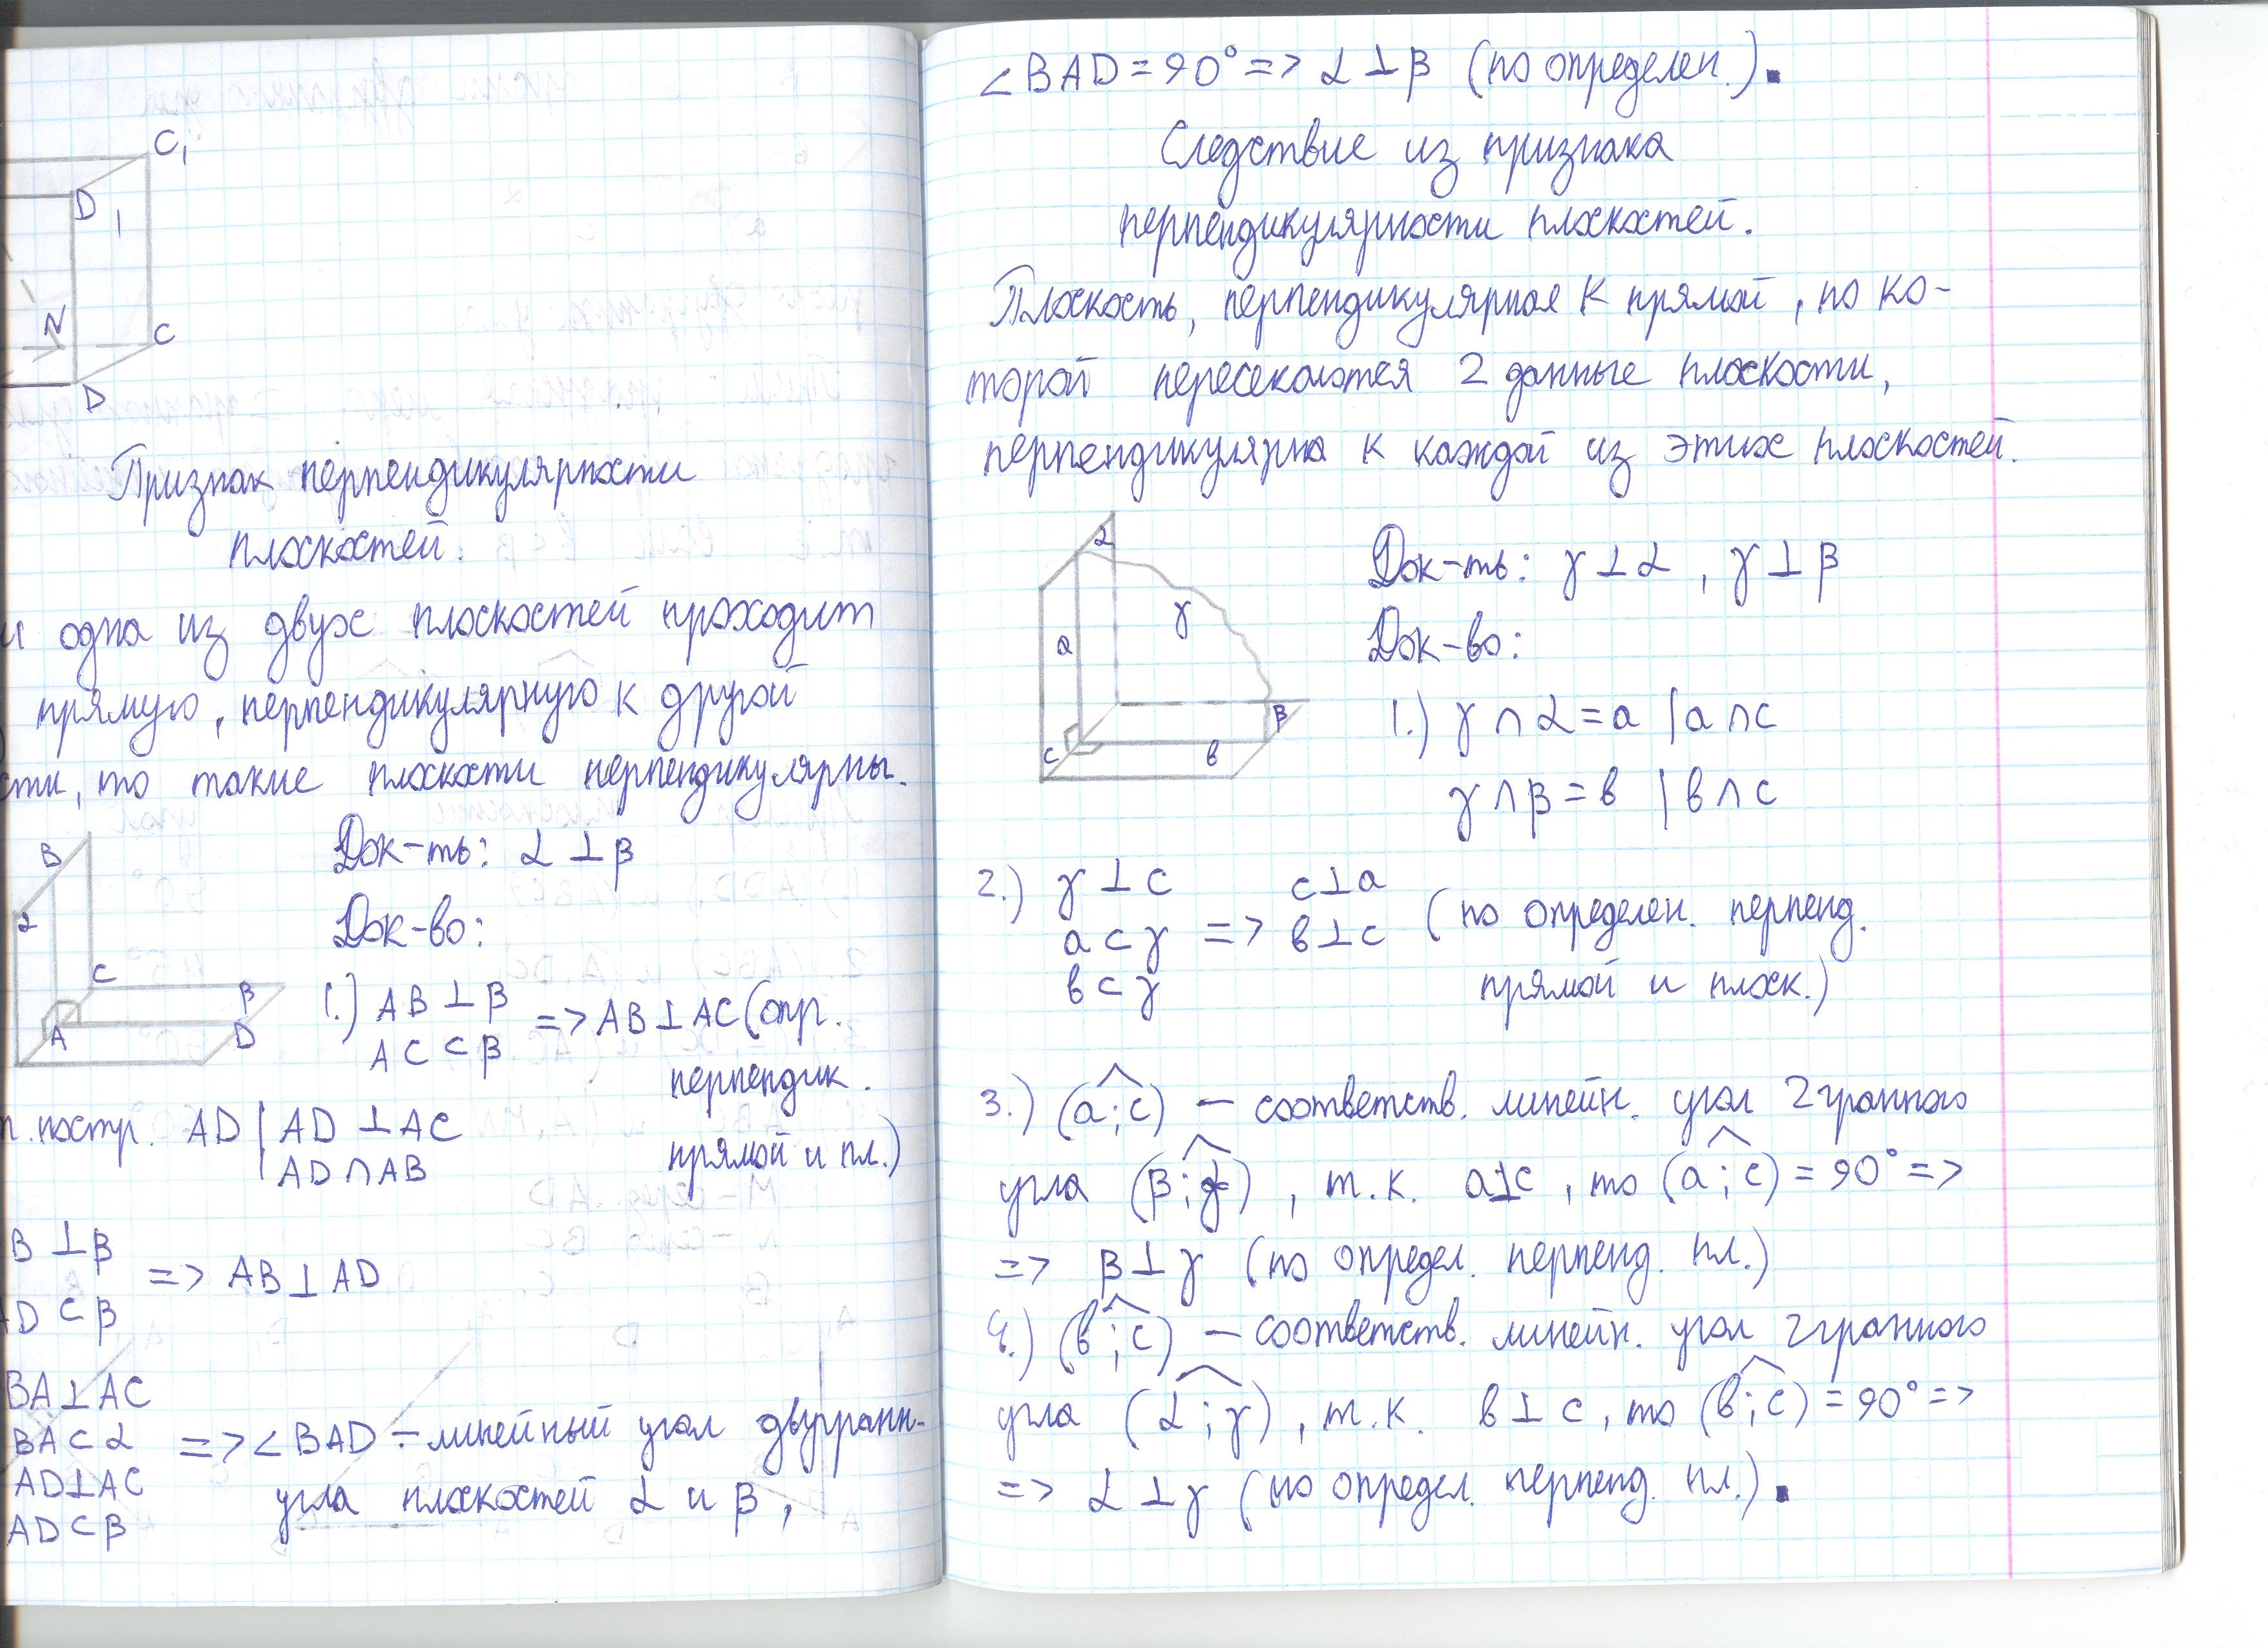 C₁
D₁
N
C
D
Признак перпендикулярности
плоскостей.
и одна из двух плоскостей проходит
прямую, перпендикулярную к другой
сти, то такие плоскости перпендикулярны.
B
α
C
β
A
D
Док-ть: α ⊥ β
Док-во:
1.) AB ⊥ β
AC ⊂ β
=> AB ⊥ AC (опр.
перпендик.
прямой и пл.)
п. постр. AD | AD ⊥ AC
AD ∩ AB
B ⊥ β
AD ⊂ β
=> AB ⊥ AD
BA ⊥ AC
BA ⊂ α
AD ⊥ AC
AD ⊂ β
=> ∠BAD – линейный угол двугранн-
угла плоскостей α и β,
∠BAD = 90° => α ⊥ β (по определен.).
Следствие из признака
перпендикулярности плоскостей.
Плоскость, перпендикулярная к прямой, по ко-
торой пересекаются 2 данные плоскости,
перпендикулярна к каждой из этих плоскостей.
α
γ
a
β
c
в
Док-ть: γ ⊥ α , γ ⊥ β
Док-во:
1.) γ ∩ α = a | a ∩ c
γ ∩ β = в | в ∩ c
2.) γ ⊥ c
a ⊂ γ
в ⊂ γ
=> c ⊥ a
в ⊥ c
(по определен. перпенд.
прямой и плоск.)
3.) (a ; c) – соответств. линейн. угол 2гранного
угла (β ; γ) , т.к. a ⊥ c , то (a ; c) = 90° =>
=> β ⊥ γ (по определ. перпенд. пл.)
4.) (в ; c) – соответств. линейн. угол 2гранного
угла (α ; γ) , т.к. в ⊥ c , то (в ; c) = 90° =>
=> α ⊥ γ (по определ. перпенд. пл.).